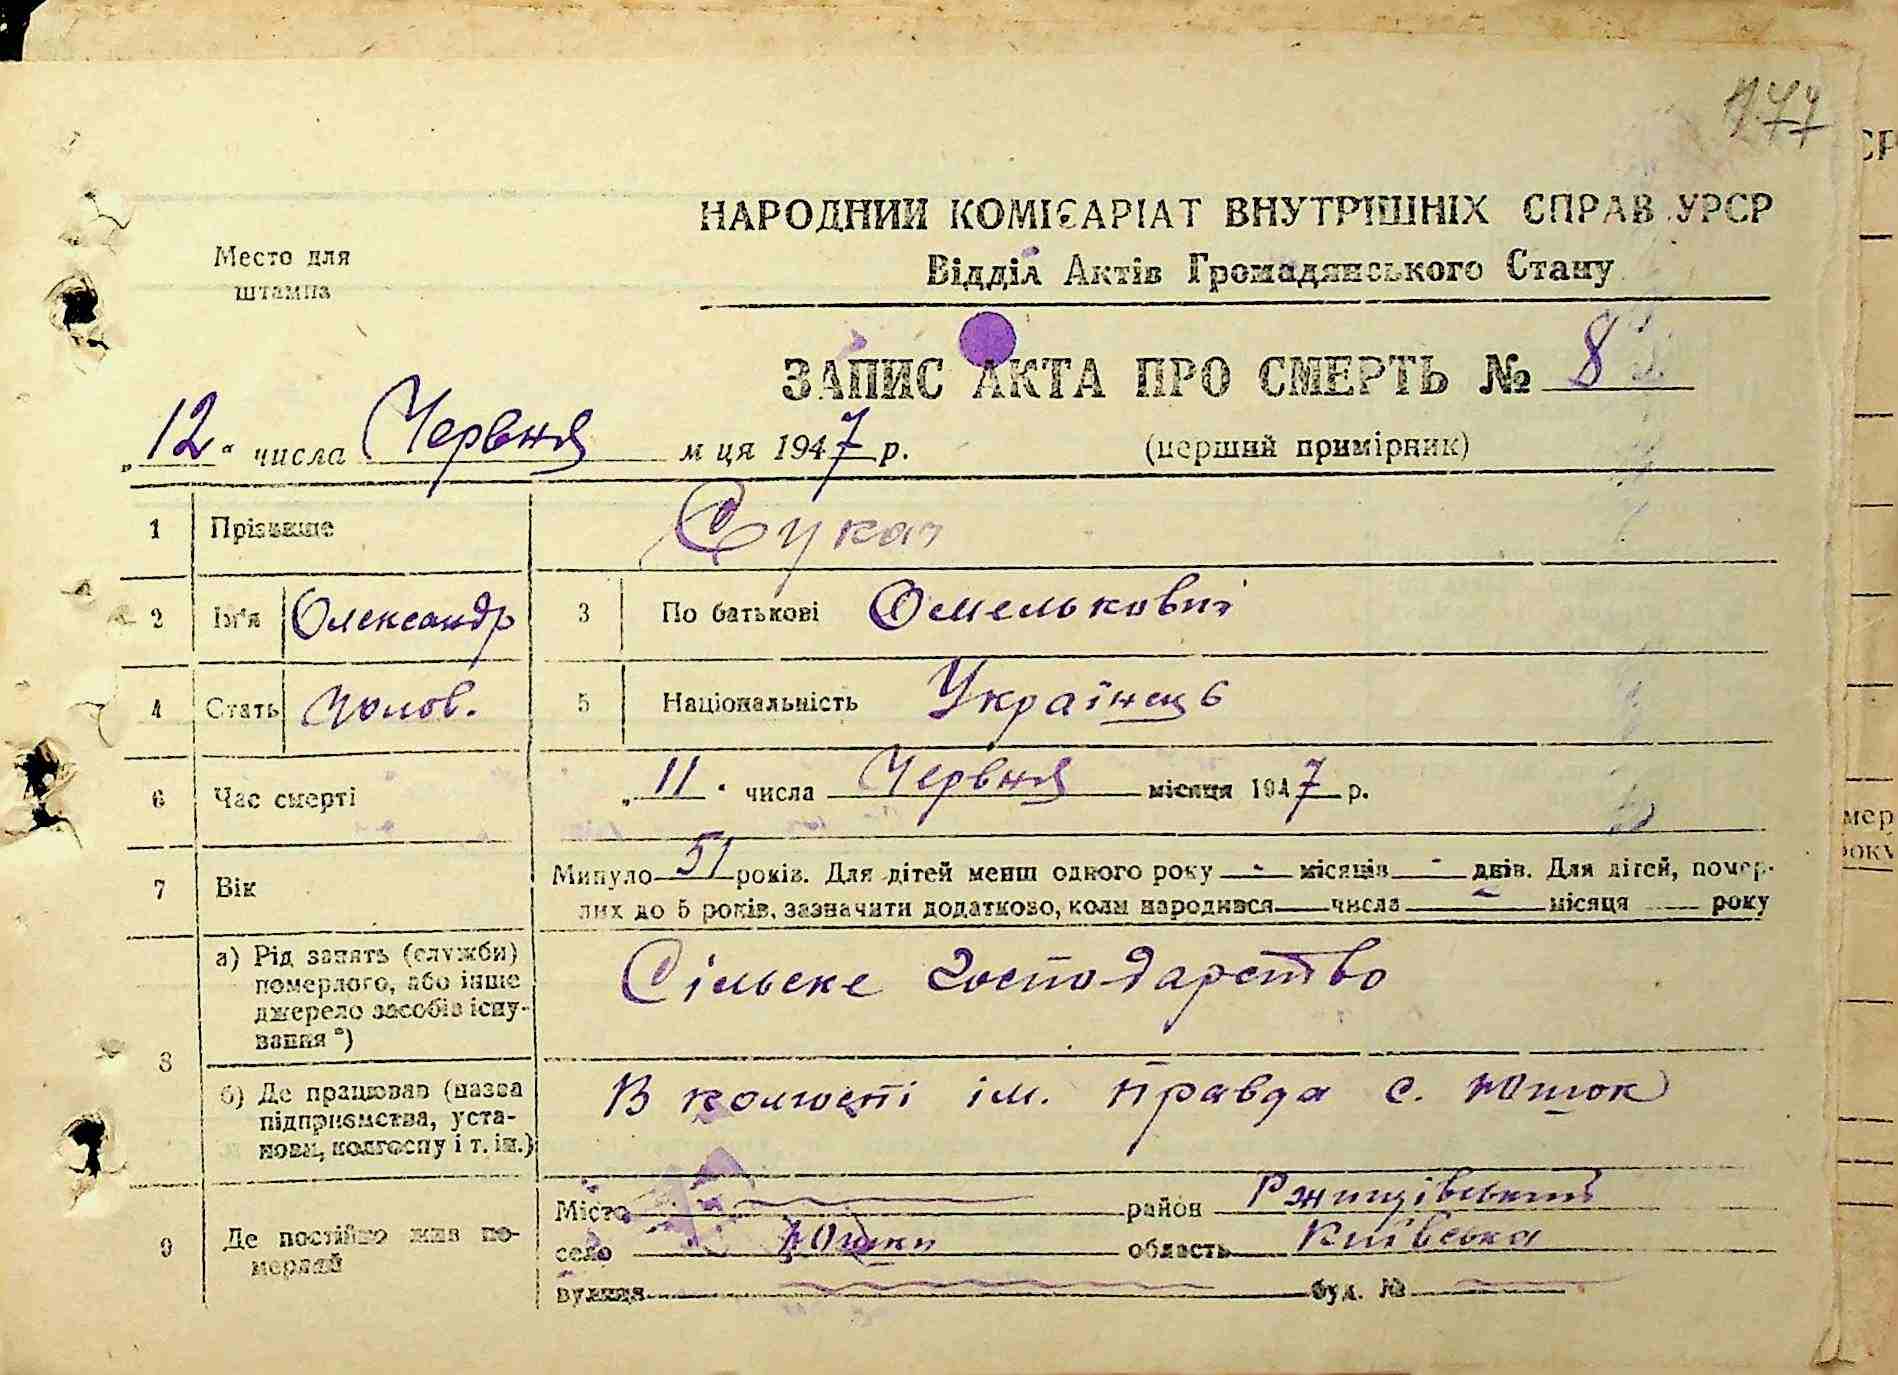 177
НАРОДНИЙ КОМІСАРІАТ ВНУТРІШНІХ СПРАВ УРСР
Место для
штампа
Відділ Актів Громадянського Стану
ЗАПИС АКТА ПРО СМЕРТЬ № 8
„12“ числа Червня м ця 1947 р. (перший примірник)
1 Прізвище Сукач
2 Ім'я Олександр 3 По батькові Омелькович
4 Стать Чолов. 5 Національність Українець
6 Час смерті „11“ числа Червня місяця 1947 р.
7 Вік Минуло 51 років. Для дітей менш одного року - місяців - днів. Для дітей, помер-
лих до 5 років, зазначити додатково, коли народився числа - місяця року
8 а) Рід занять (служби)
померлого, або інше
джерело засобів існу-
вання *)
Сільске господарство
б) Де працював (назва
підприємства, уста-
нови, колгоспу і т. ін.)
В колгоспі ім. Правда с. Юшок
9 Де постійно жив по-
мерлий
Місто район Ржищівський
село Юшки область Київська
вулиця буд. №
СР
мер
року